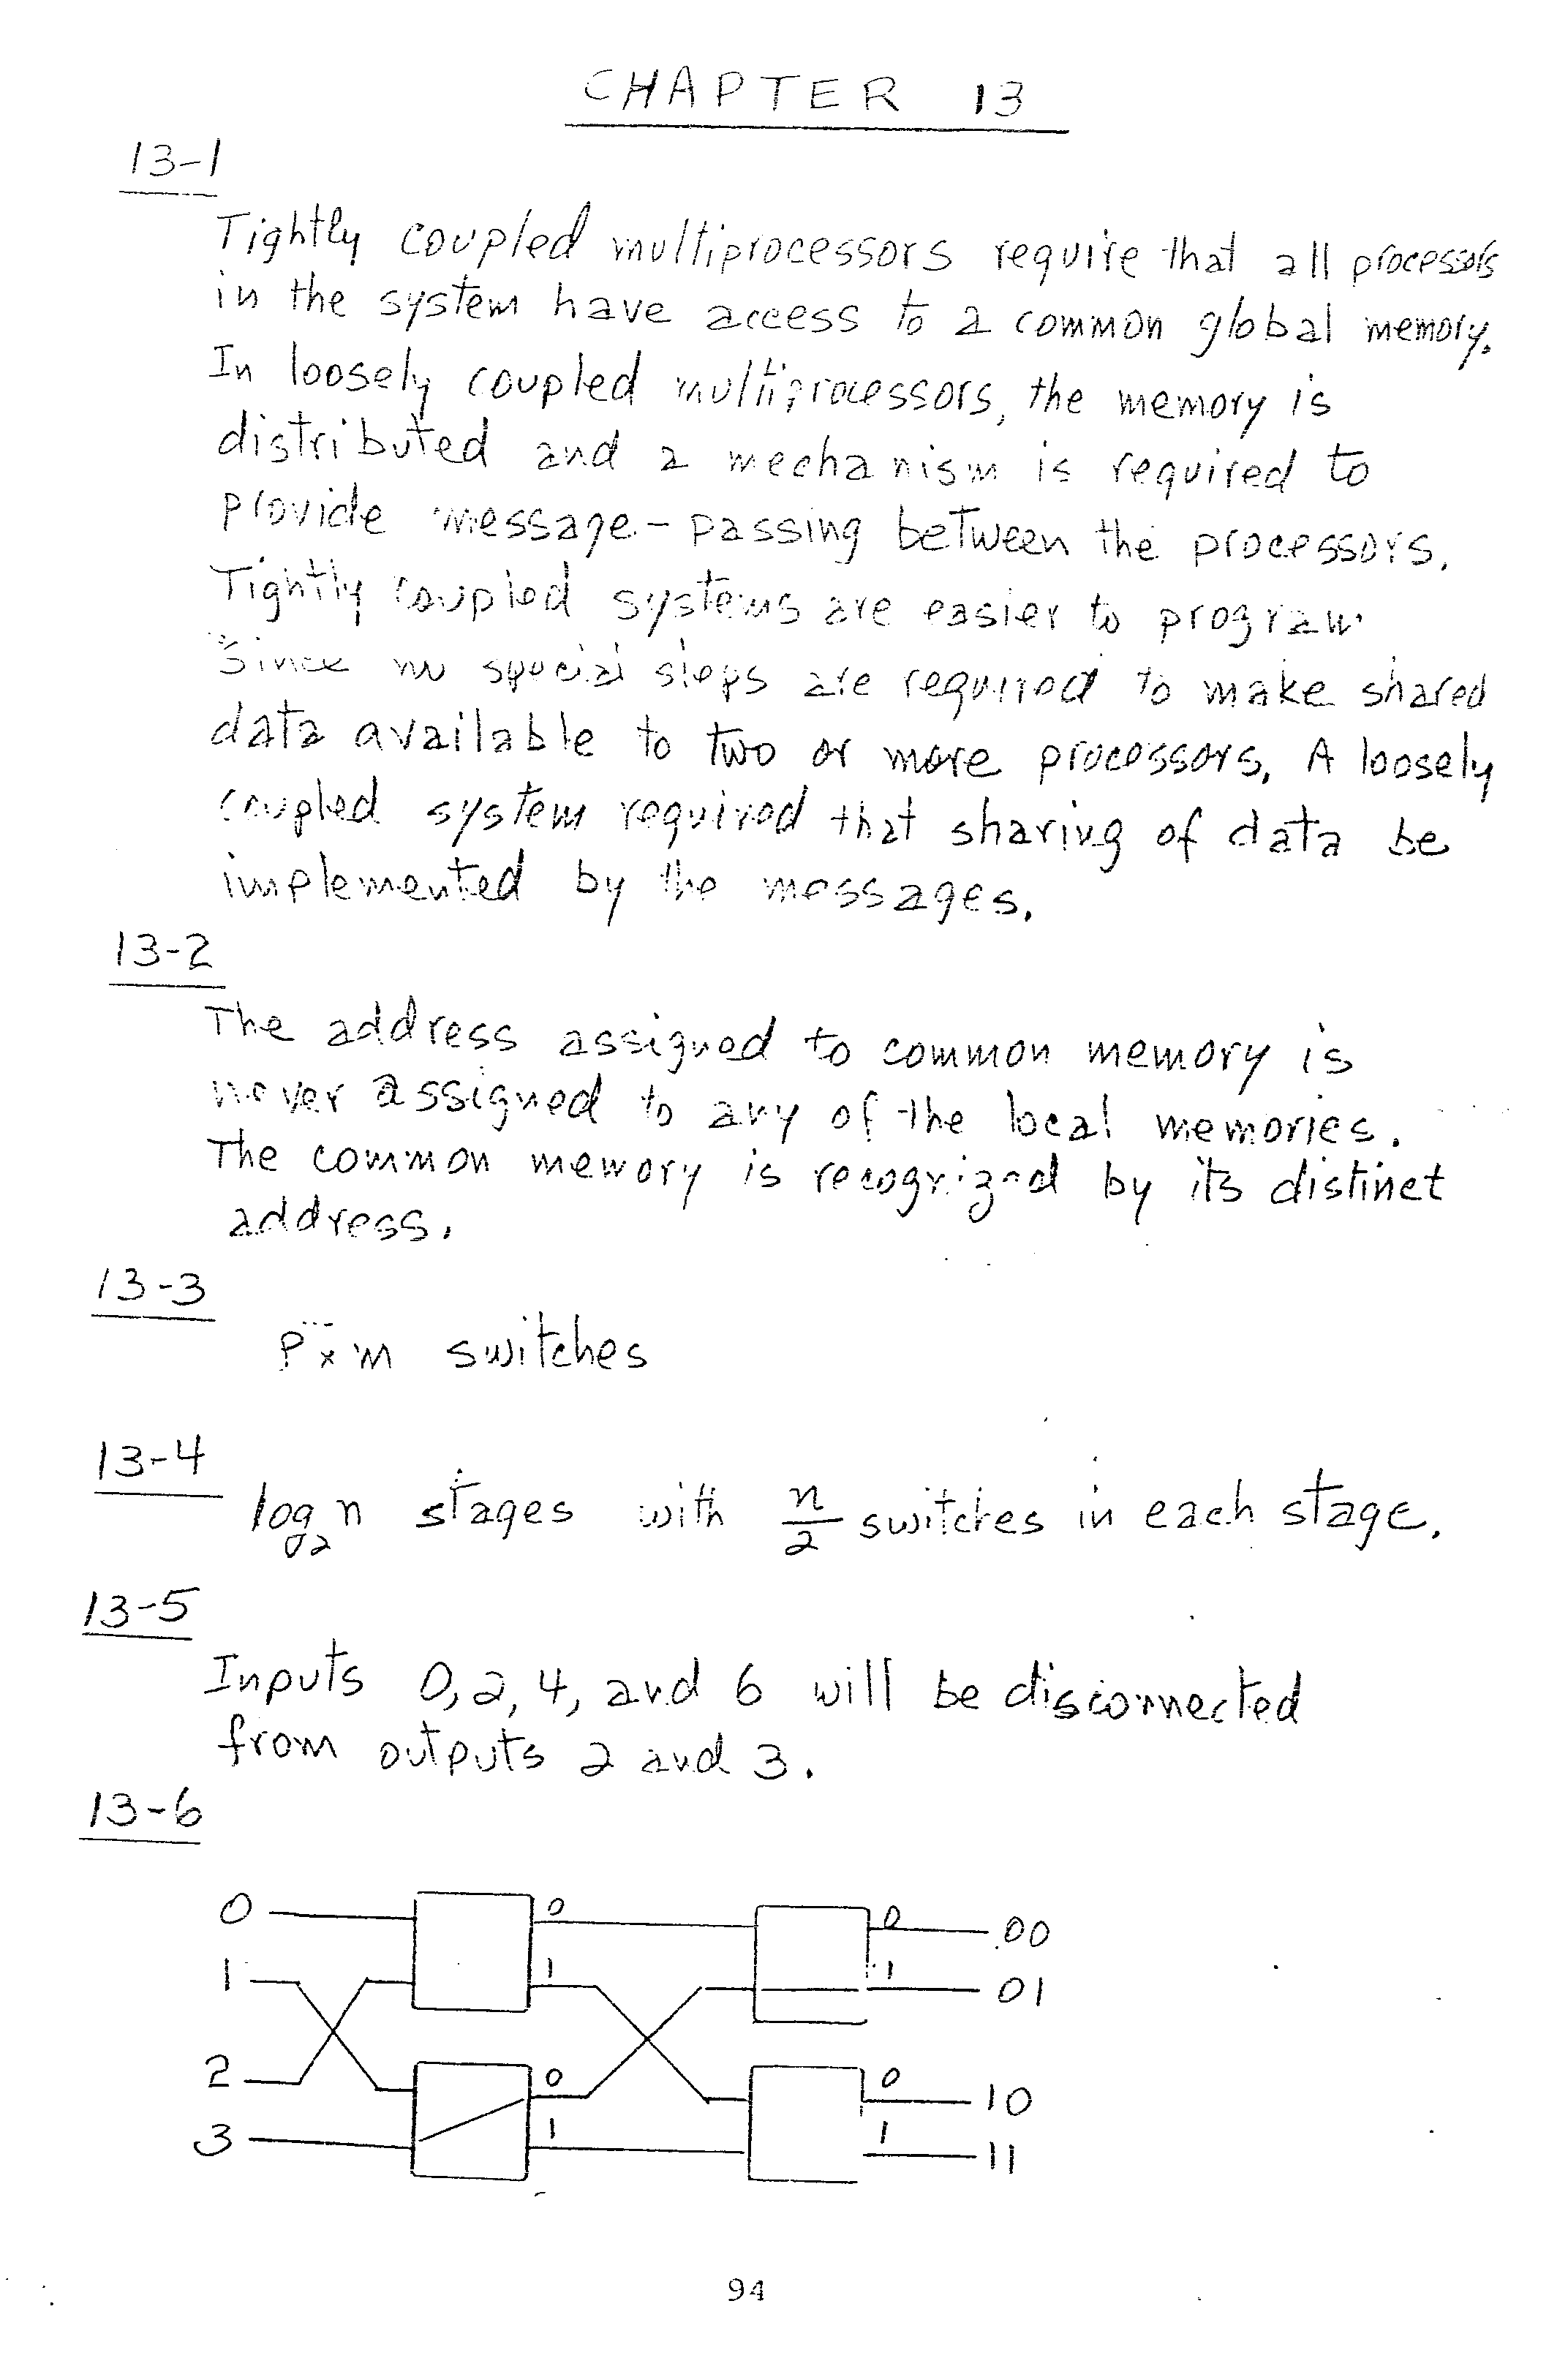 CHAPTER 13
13-1
Tightly coupled multiprocessors require that all processors
in the system have access to a common global memory.
In loosely coupled multiprocessors, the memory is
distributed and a mechanism is required to
provide message-passing between the processors.
Tightly coupled systems are easier to program
since no special steps are required to make shared
data available to two or more processors. A loosely
coupled system required that sharing of data be
implemented by the messages.
13-2
The address assigned to common memory is
never assigned to any of the local memories.
The common memory is recognized by its distinct
address.
13-3
P × m switches
13-4
log₂ n stages with n/2 switches in each stage.
13-5
Inputs 0, 2, 4, and 6 will be disconnected
from outputs 2 and 3.
13-6
0 0 0 00
1 1 1 01
2 0 0 10
3 1 1 11
94